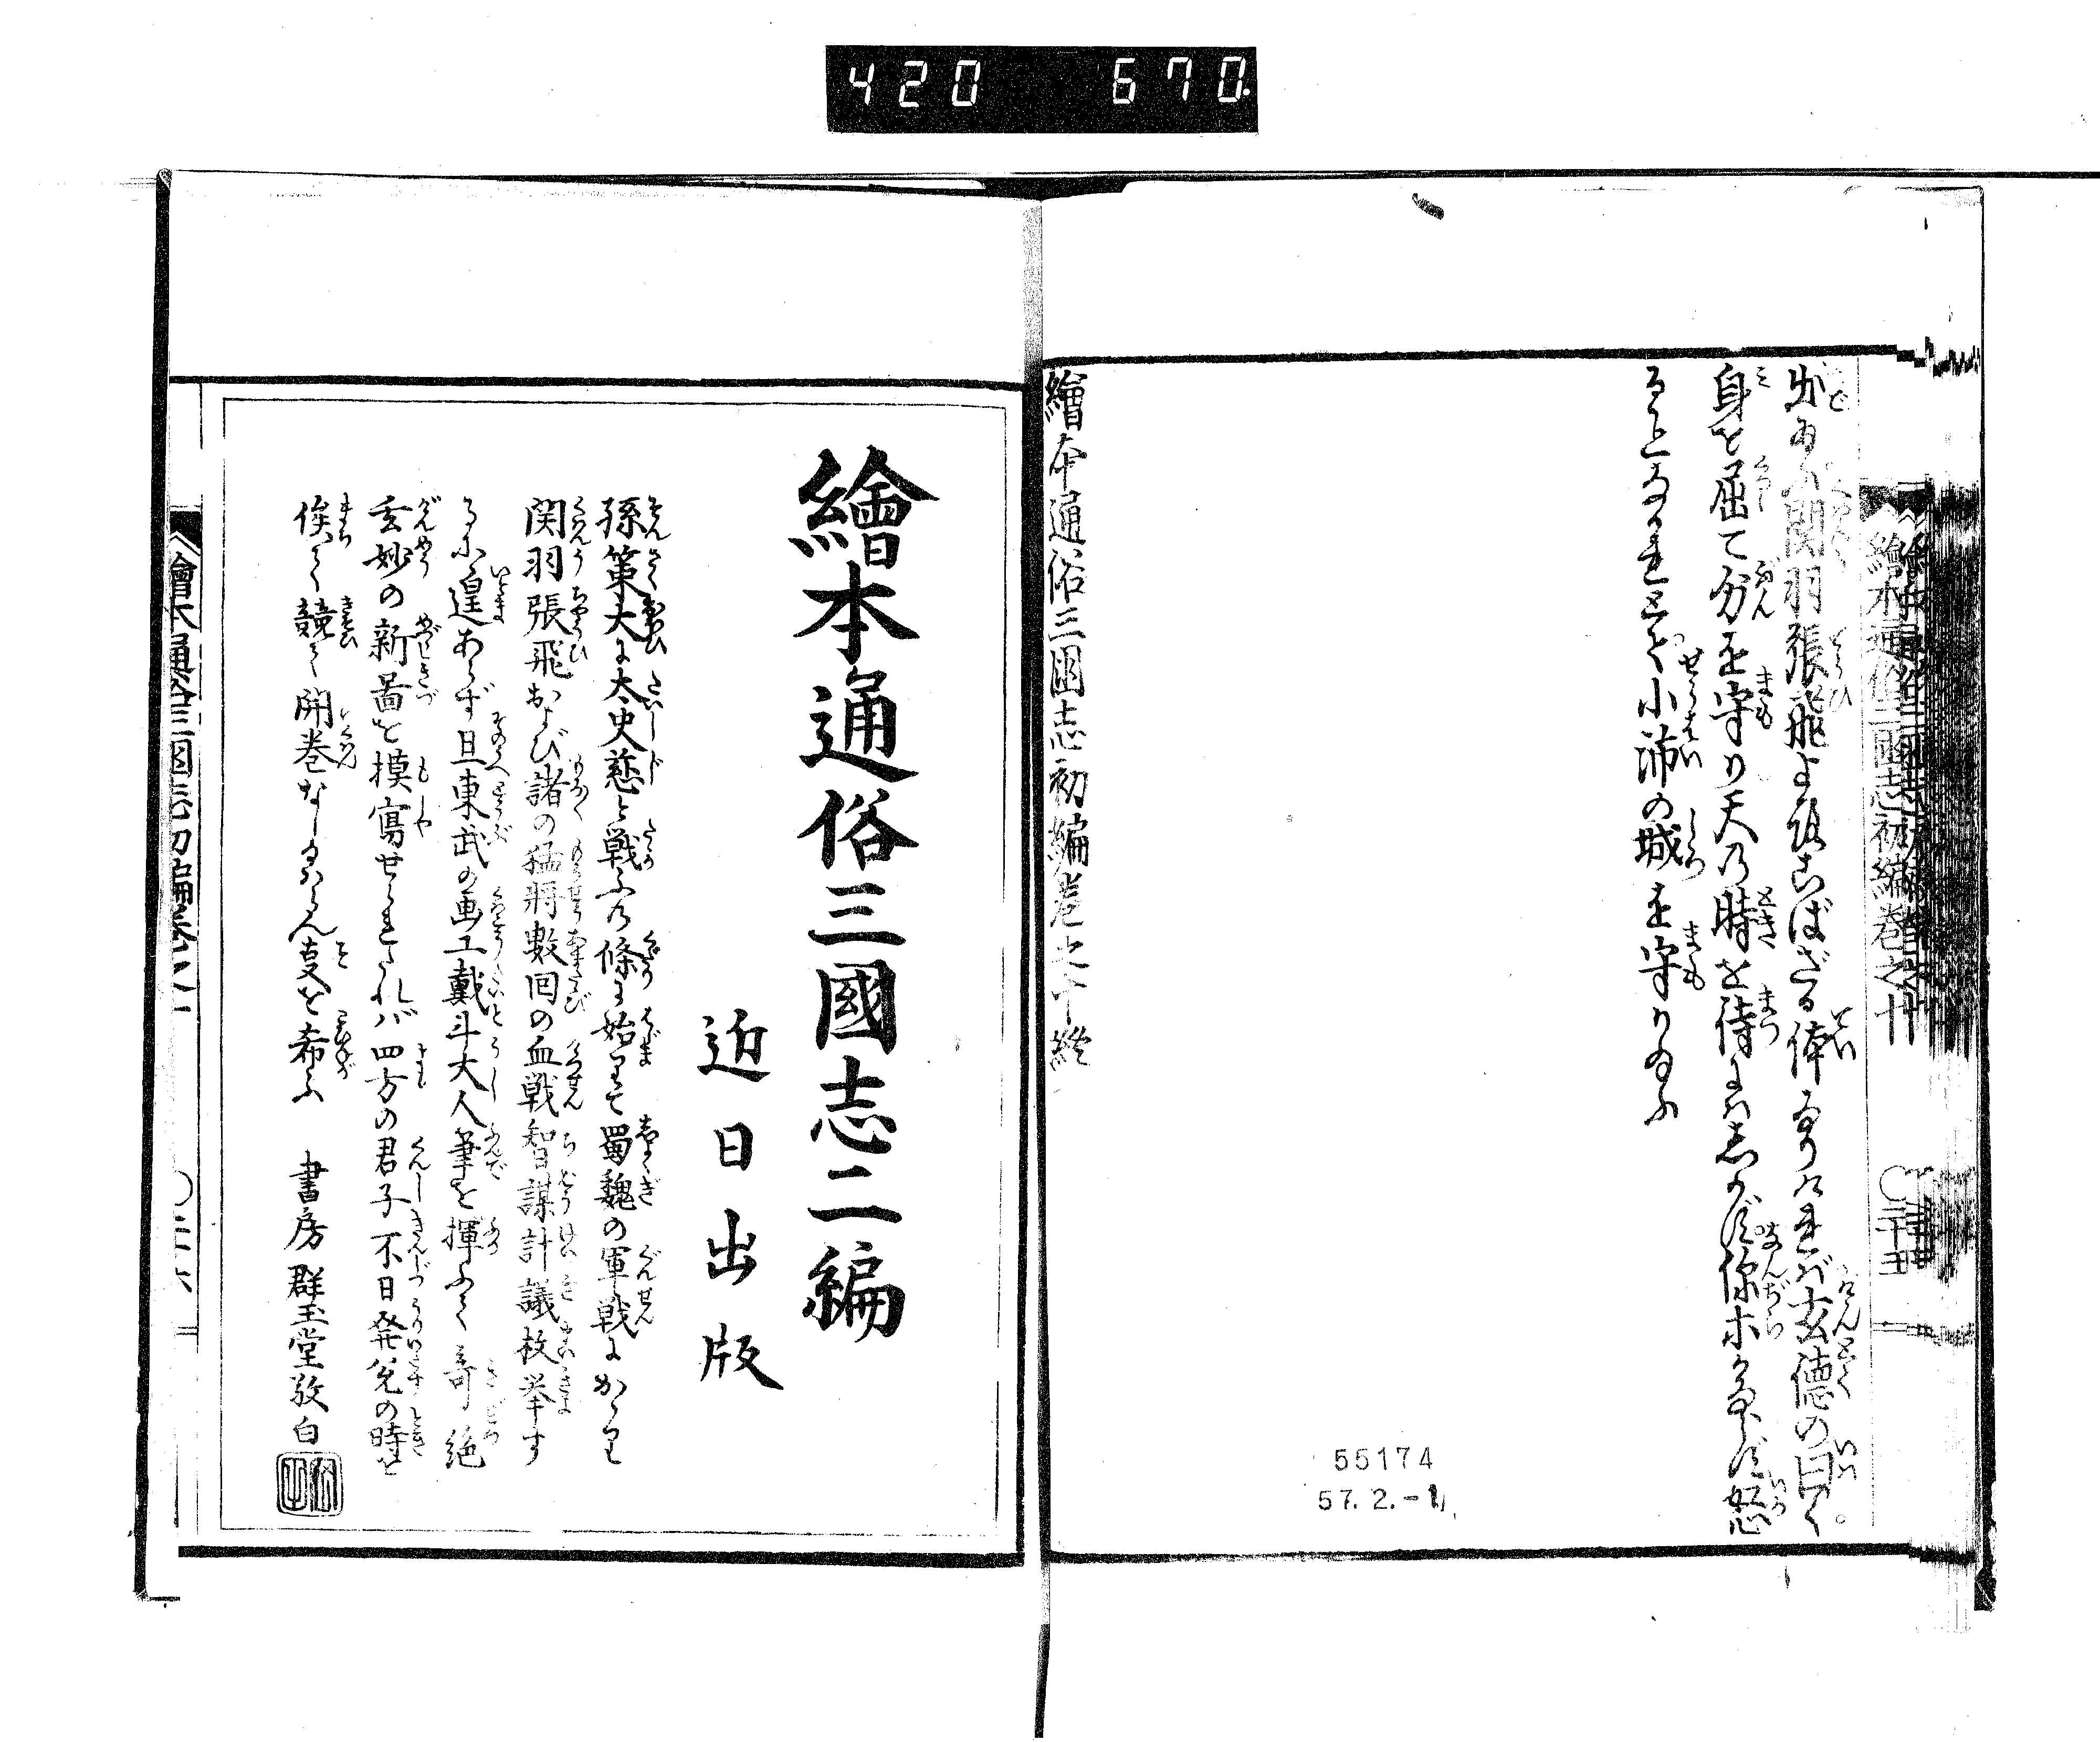 420 670.
繪本通俗三國志初編卷之十
〇二十五
出ゐふ関羽張飛よろこばざる体なりければ玄徳の曰く。
身を屈て分を守り天乃時を待よりはしかず你ホかならず怒
ることなかれとて小沛の城を守りゐふ
繪本通俗三國志初編卷之十終
55174
57.2.-1
繪本通俗三國志二編
近日出版
孫策大に太史慈と戦ふ乃條に始りて蜀魏の軍戦にかゝり
関羽張飛および諸の猛将數囘の血戦智謀計議枚挙す
るに遑あらず且東武の画工戴斗大人筆を揮ふて奇絶
玄妙の新畣を摸寫せられたれバ四方の君子不日発兌の時を
俟て競て開巻なし給はん叓を希ふ 書房 群玉堂敬白
繪本通俗三國志初編卷之十